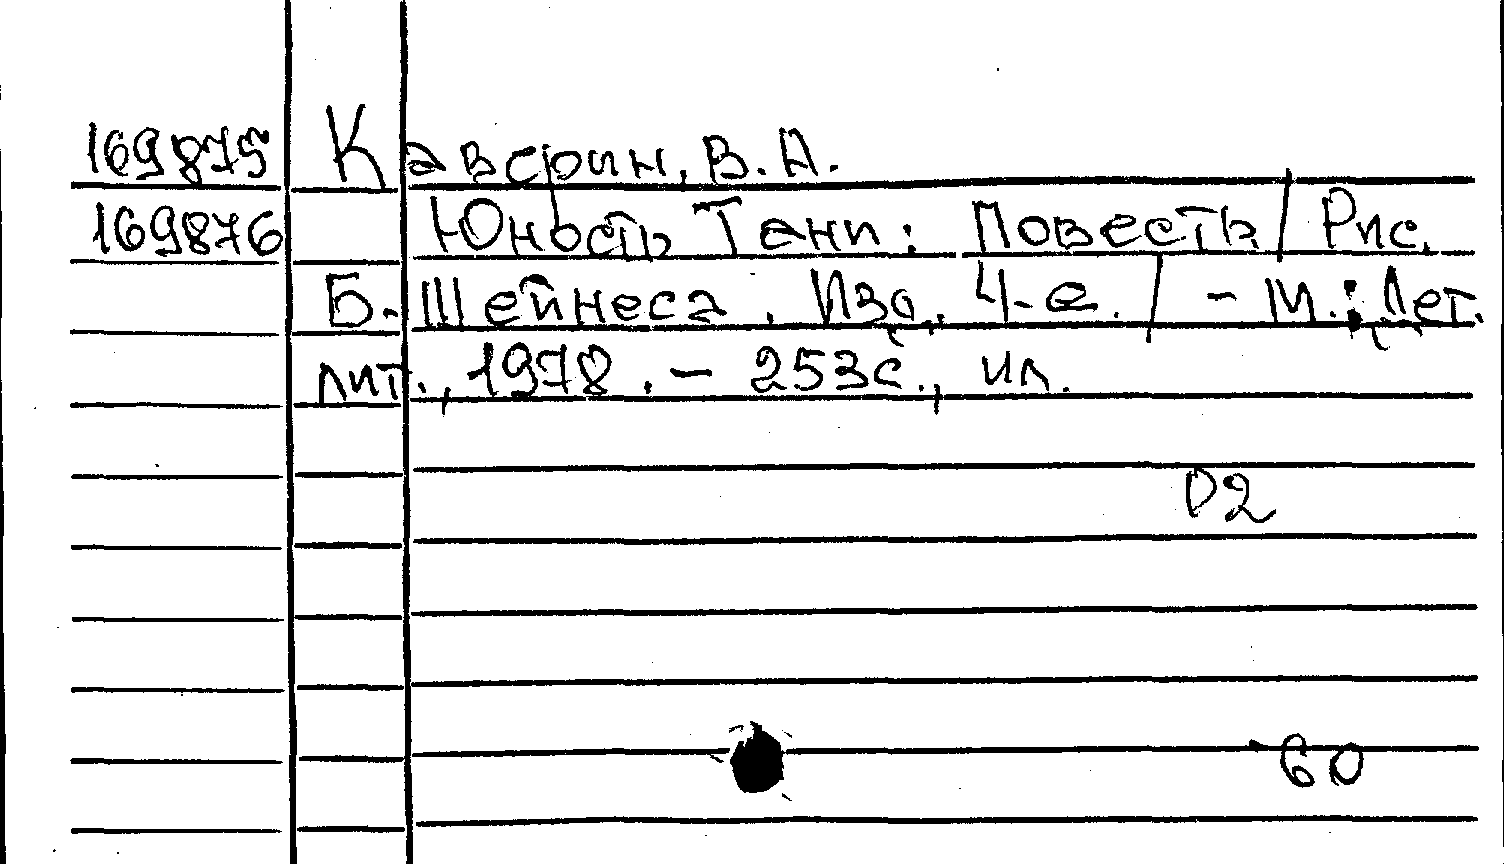 169875 Каверин, В. А.
169876 Юность Тани: Повесть / Рис.
Б. Шейнеса. Изд. 4-е. / - М.: Дет.
лит., 1978. - 253 с., ил.
D2
60